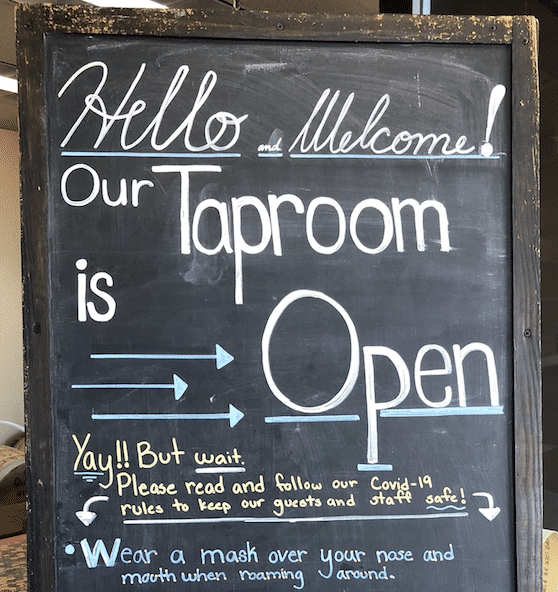 Hello and Welcome!
Our Taproom
is
Open
Yay!! But wait.
Please read and follow our Covid-19
rules to keep our guests and staff safe!
• Wear a mask over your nose and
mouth when roaming around.